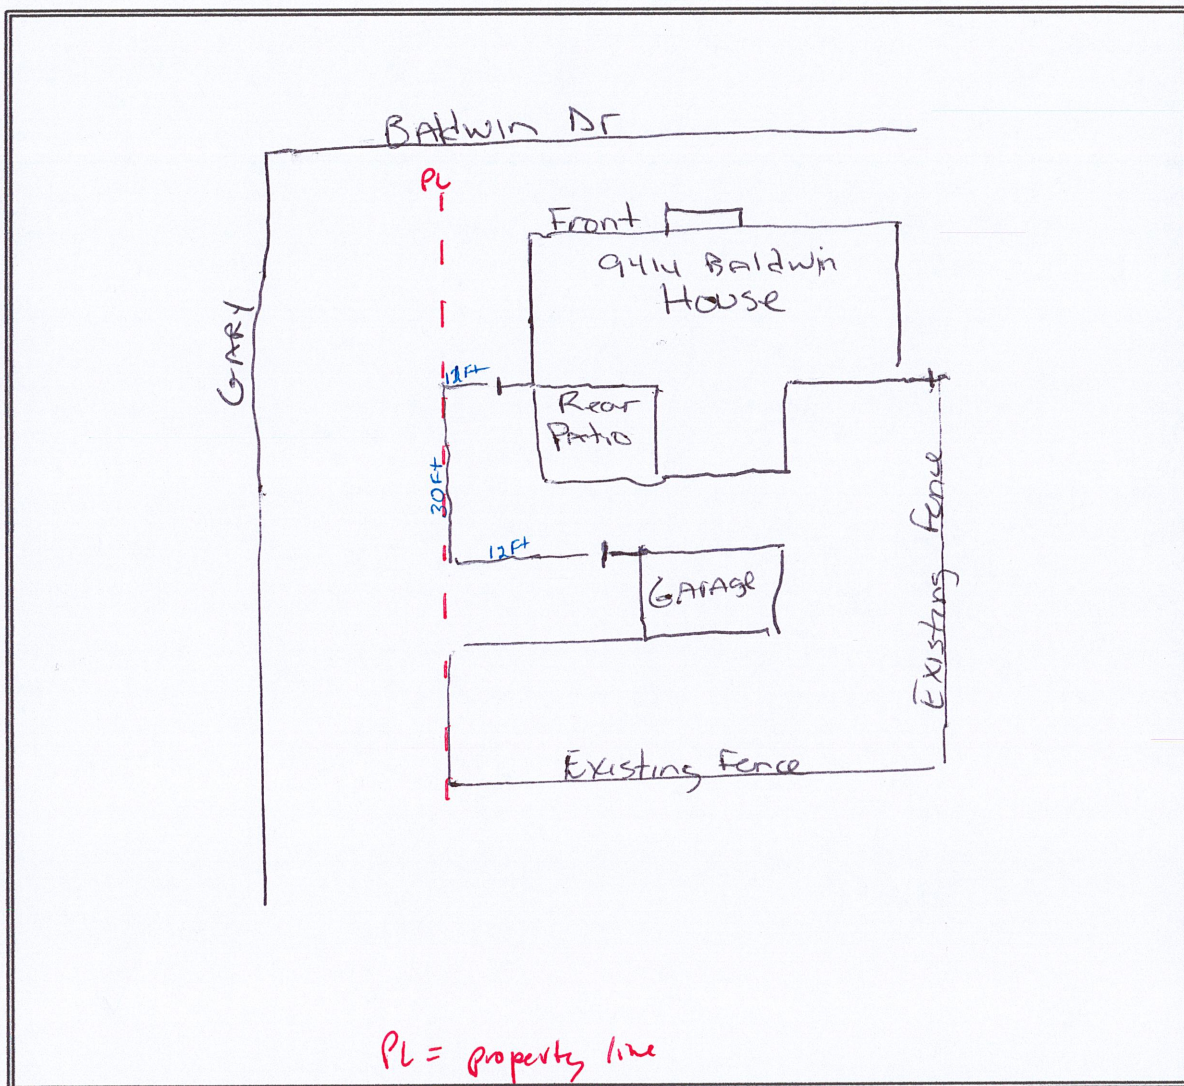 BAldwin Dr
PL
Front
9414 BAldwin
House
GARY
Rear
PAtio
30Ft
12Ft
GArAge
Existing Fence
Existing Fence
PL = property line